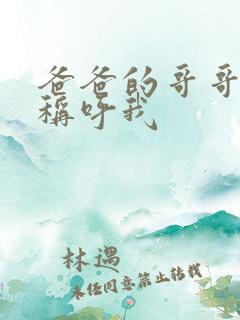 爸爸的哥哥
稱呼我
林遇
未经同意禁止转载